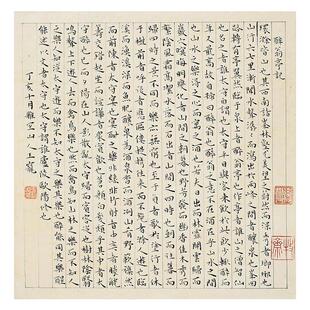 醉翁亭記
環滁皆山也其西南諸峰林壑尤美望之蔚然而深秀者瑯琊也
山行六七里漸聞水聲潺潺而瀉出於兩峰之間者釀泉也峰回
路轉有亭翼然臨於泉上者醉翁亭也作亭者誰山之僧智仙
也名之者誰太守自謂也太守與客來飲於此飲少輒醉而
年又最高故自號曰醉翁也醉翁之意不在酒在乎山水之間
也山水之樂得之心而寓之酒也若夫日出而林霏開雲歸而
巖穴暝晦明變化者山間之朝暮也野芳發而幽香佳木秀而
繁陰風霜高潔水落而石出者山間之四時也朝而往暮而
歸四時之景不同而樂亦無窮也至于負者歌於塗行者休於
樹前者呼後者應傴僂提攜往來而不絕者滁人遊也臨
溪而漁溪深而魚肥釀泉為酒泉香而酒洌山肴野蔌雜然
而前陳者太守宴也宴酣之樂非絲非竹射者中弈者勝觥
籌交錯起坐而諠譁者衆賓懽也蒼顏白髮頹乎其中者
太守醉也已而夕陽在山人影散亂太守歸而賓客從也樹林陰翳
鳴聲上下遊人去而禽鳥樂也然而禽鳥知山林之樂而不知人
之樂人知從太守遊而樂而不知太守之樂其樂也醉能同其樂醒
能述以文者太守也太守謂誰廬陵歐陽修也
丁亥十月山人王